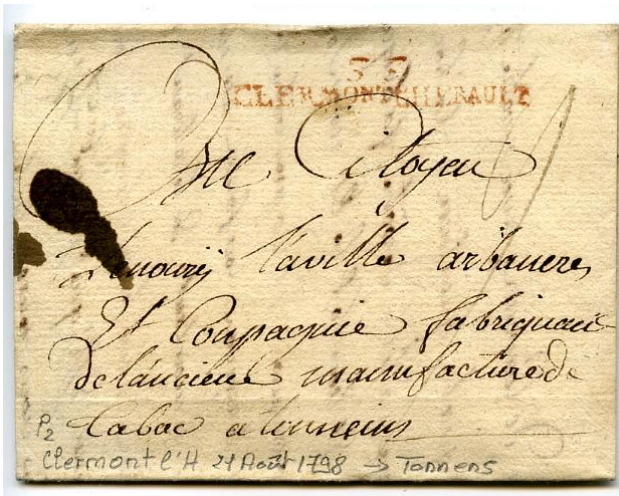 33
CLERMONT L'HERAULT
Au Citoyen
laville arbaneres
Et Compagnie fabriquan
de lancienne manufacture de
tabac a tonneins
P2
Clermont l'H 21 Août 1798 → Tonnens